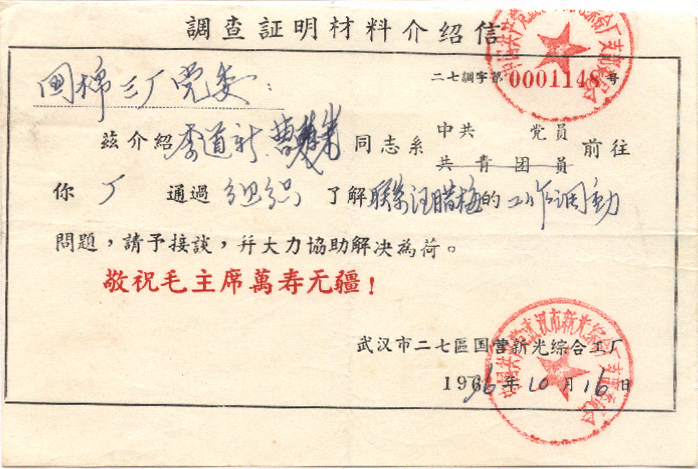 調查証明材料介紹信
二七調字第0001148号
国棉三厂党委：
兹介紹李道新 曹 同志系 中共 党員 前往
共青团員
你厂 通過 组织 了解 联系汪腊梅 的 工作调动
問題，請予接談，幷大力協助解决為荷。
敬祝毛主席萬寿无疆！
武汉市二七區国营新光綜合工厂
1976年10月16日
中国共产党武汉市新光綜合工厂支部委員会